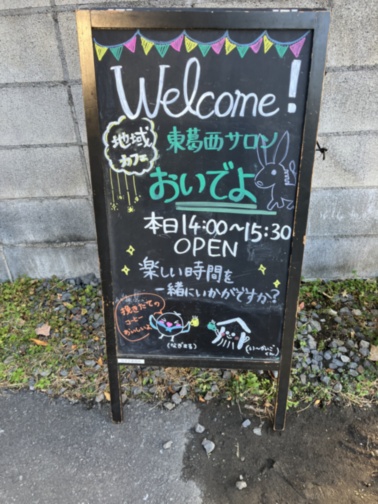 Welcome!
地域
カフェ
東葛西サロン
おいでよ
本日14:00～15:30
OPEN
楽しい時間を
一緒にいかがですか?
挽きたての
コーヒー
おいしいよ